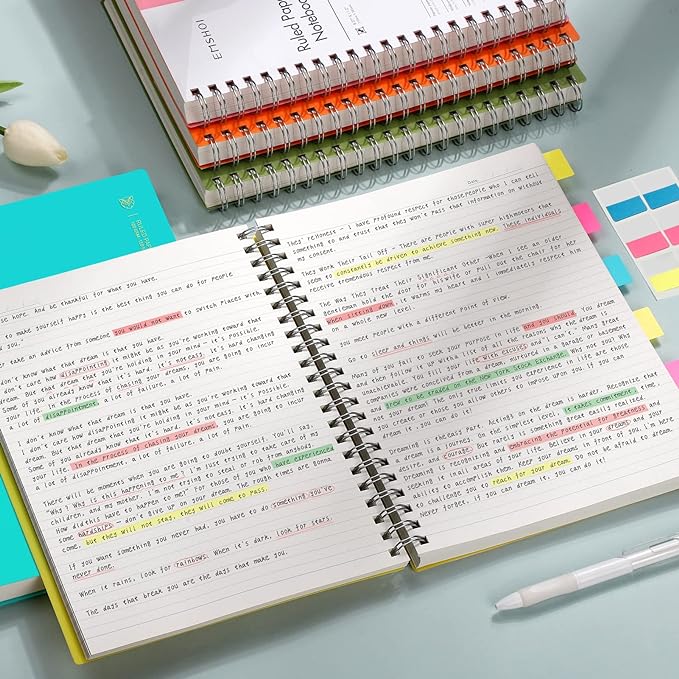 EMSHOI
Ruled Paper
Notebook
se hope. And be thankful for what you have.
to make yourself happy is the best thing you can do for people
s you."
take an advice from someone you would not want to switch places with.
don't know what that dream is that you have.
don't care how disappointing it might be as you're working toward that
dream. But that dream that you're holding in your mind - it's possible.
Some of you already know that it's hard, it's not easy. It's hard changing
your life. In the process of chasing your dreams, you are going to incur
a lot of disappointment, a lot of failure, a lot of pain.
I don't know what that dream is that you have.
I don't care how disappointing it might be as you're working toward that
dream. But that dream that you're holding in your mind - it's possible.
Some of you already know that it's hard, it's not easy. It's hard changing
your life. In the process of chasing your dreams, you are going to incur
a lot of disappointment, a lot of failure, a lot of pain.
There will be moments when you are going to doubt yourself. You'll say,
"Why? Why is this happening to me? I'm just trying to take care of my
children, and my mother. I'm not trying to steal or rob from anybody.
How did this have to happen to me? For those of you who have experienced
some hardships - don't give up on your dream. The rough times are gonna
come, but they will not stay, they will come to pass.
If you want something you never had, you have to do something you've
never done.
When it rains, look for rainbows. When it's dark, look for stars.
The days that break you are the days that make you.
They reminess - I have profound respect for those people who I can tell
something to and trust that they won't pass that information on without
my consent.
They Work Their Tail Off - There are people with super highmotors that
seem to constantly be driven to achieve something new. These individuals
receive tremendous respect from me.
The Way They Treat Their Significant Other -When I see an older
gentleman hold the door for his wife or pull out the chair for her
when sitting down, it warms my heart and I immediately respect him
on a whole new level.
you meet people with a different point of view.
Go to sleep and things will be better in the morning.
Many of you fail to seek your purpose in life and you should. You dream
and then follow it up with a list of all the reasons why the dream is
unachievable. You fill your life with excuses and "I can't". Many great
companies were constructed from a dream nurtured in a garage or basement
and grew to be traded on the New York Stock Exchange. Why not you?
You create your own limitations. Who you become in life are those
you create or those you allow others to impose upon you. If you can
dream it, you can do it!
Dreaming is the easy part. Acting on the dream is harder. Recognize that
desire, and journey. On a simple level, it takes commitment, time,
dreaming is recognizing and embracing the potential for greatness and
seeking it in all areas of your life. Believe in your dreams and your
abilities to accomplish them. Keep your dreams in front of you. I'm here
to challenge you to reach for your dream. Do not be afraid to dream.
Never forget, if you can dream it, you can do it!